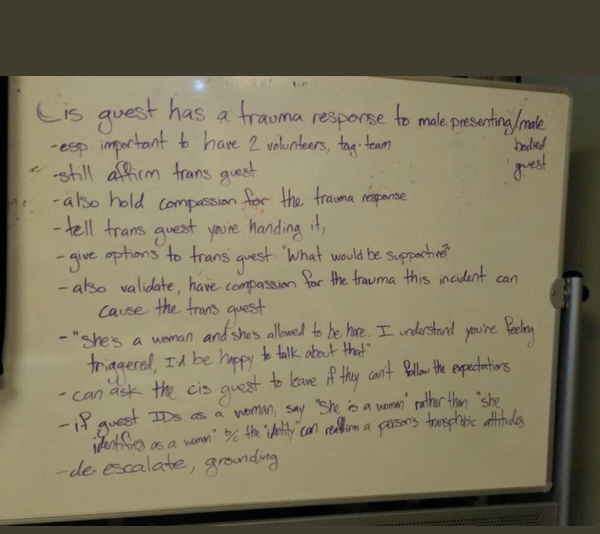 Cis guest has a trauma response to male presenting/male
bodied
guest
-esp. important to have 2 volunteers, tag-team
-still affirm trans guest
-also hold compassion for the trauma response
-tell trans guest you're handing it,
-give options to trans guest. "What would be supportive?"
-also validate, have compassion for the trauma this incident can
cause the trans guest
-"she's a woman and she's allowed to be here. I understand you're feeling
triggered, I'd be happy to talk about that"
-can ask the cis guest to leave if they can't follow the expectations
-if guest IDs as a woman, say "She is a woman" rather than "she
identifies as a woman" b/c the "identity" can reaffirm a person's transphobic attitudes
-de escalate, grounding